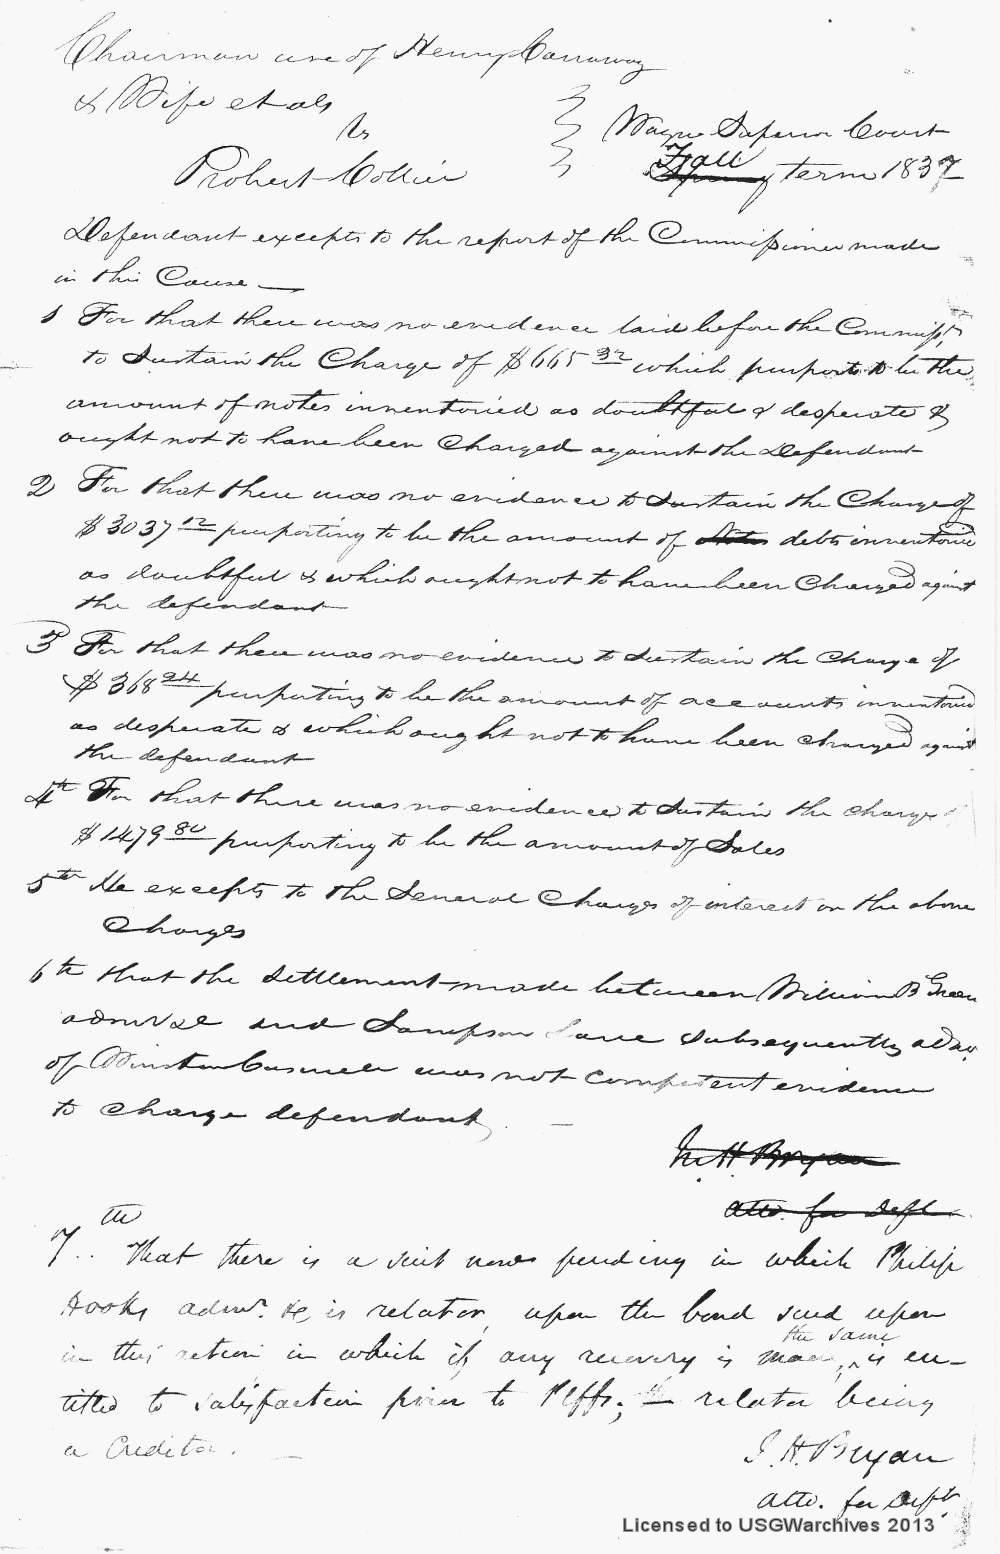 Chairman use of Henry Carraway
& Wife et als
vs
Robert Collier
Wayne Superior Court
Fall
Spring term 1837
Defendant excepts to the report of the Commissioner made
in this Cause —
1 For that there was no evidence laid before the Commissr
to Sustain the Charge of $665 32 which purports to be the
amount of notes inventoried as doubtful & desperate &
ought not to have been Charged against the Defendant
2 For that there was no evidence to Sustain the Charge of
$3037 12 purporting to be the amount of Notes debts inventoried
as doubtful & which ought not to have been Charged against
the defendant
3 For that there was no evidence to Sustain the Charge of
$368 24 purporting to be the amount of accounts inventoried
as desperate & which ought not to have been charged against
the defendant
4th For that there was no evidence to Sustain the charge of
$1479 80 purporting to be the amount of Sales
5th He excepts to the General Charges of interest on the above
Charges
6th that the Settlement made between William B Green
admr and Sampson Lane Subsequently admr
of was not competent evidence
to charge defendant
J. H. Bryan
Atto. for Deft
7th That there is a suit now pending in which Philip
Hooks admr. &c is relator, upon the bond sued upon
in this action in which if any recovery is made,
the same
is en-
titled to satisfaction prior to Plffs; the relator being
a Creditor. —
J. H. Bryan
Atto. for Deft.
Licensed to USGWarchives 2013